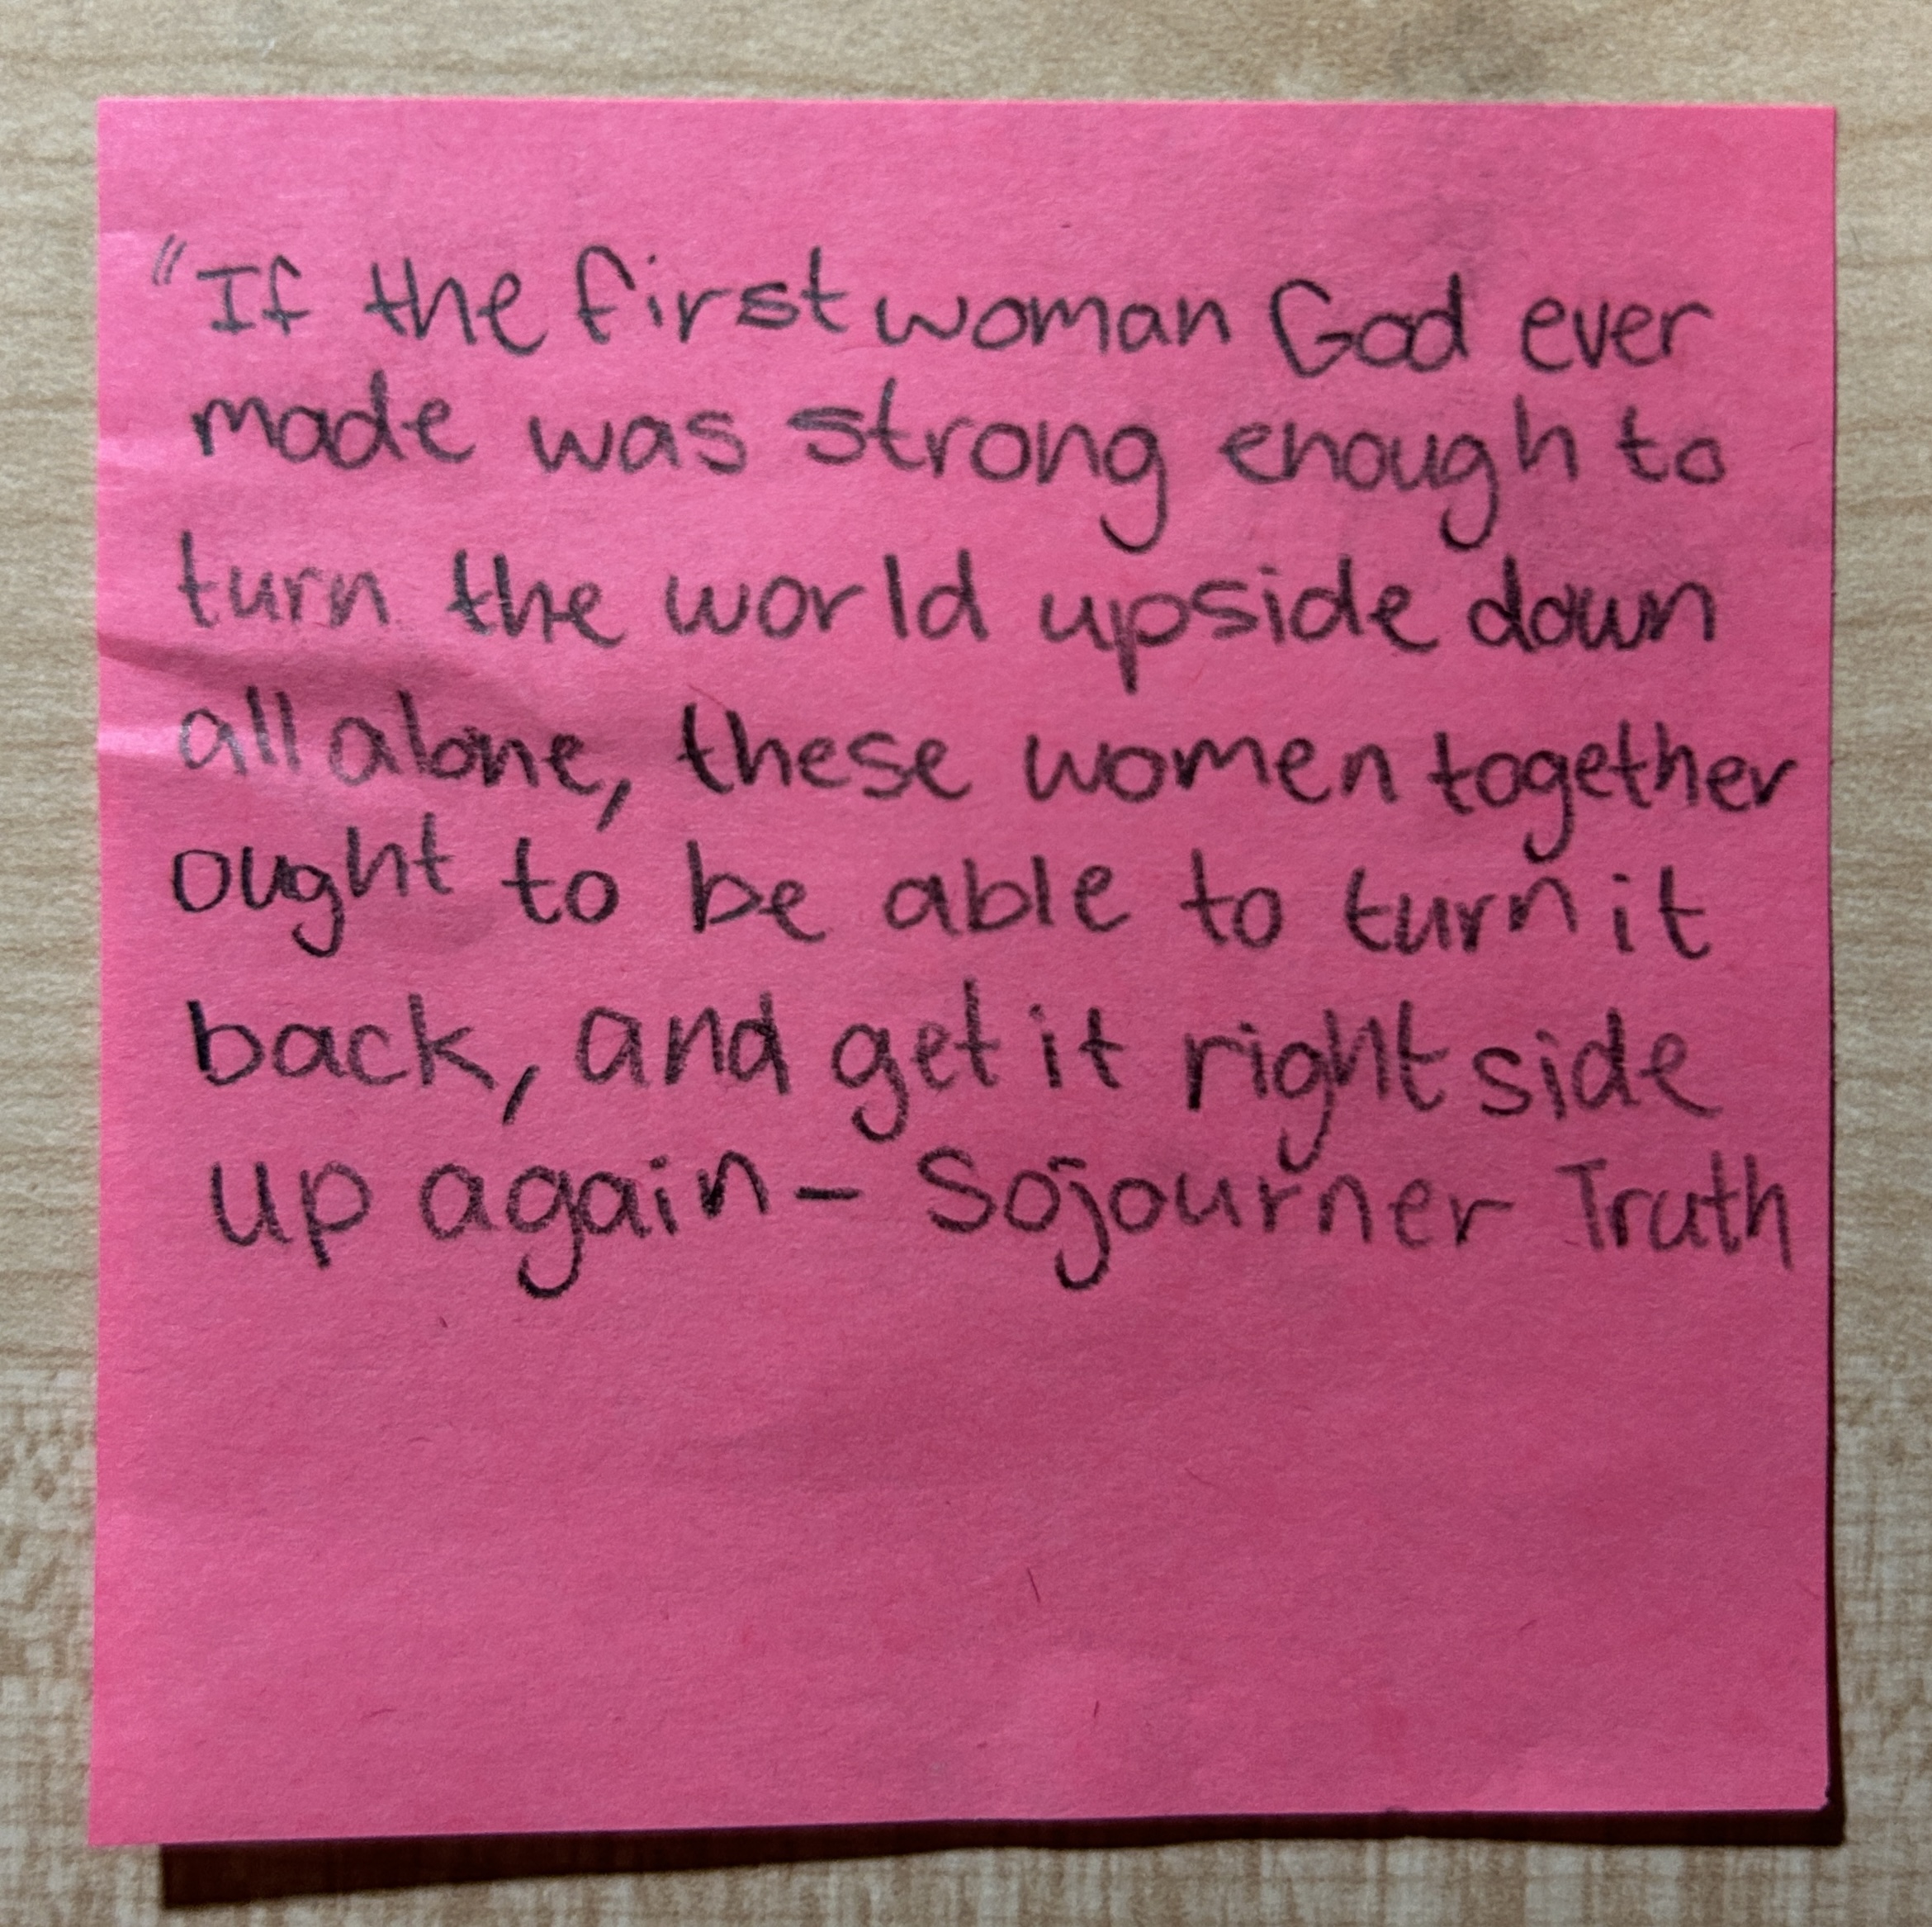 "If the first woman God ever
made was strong enough to
turn the world upside down
all alone, these women together
ought to be able to turn it
back, and get it right side
up again – Sojourner Truth